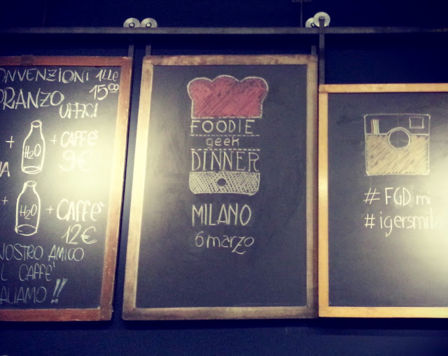 ONVENZIONI
15:00
PRANZO
UFFICI
+ H2O + CAFFE'
9€
+ H2O + CAFFE'
12€
NOSTRO AMICO
IL CAFFE'
FOODIE
geek
DINNER
MILANO
6 marzo
#FGDmi
#igersmila